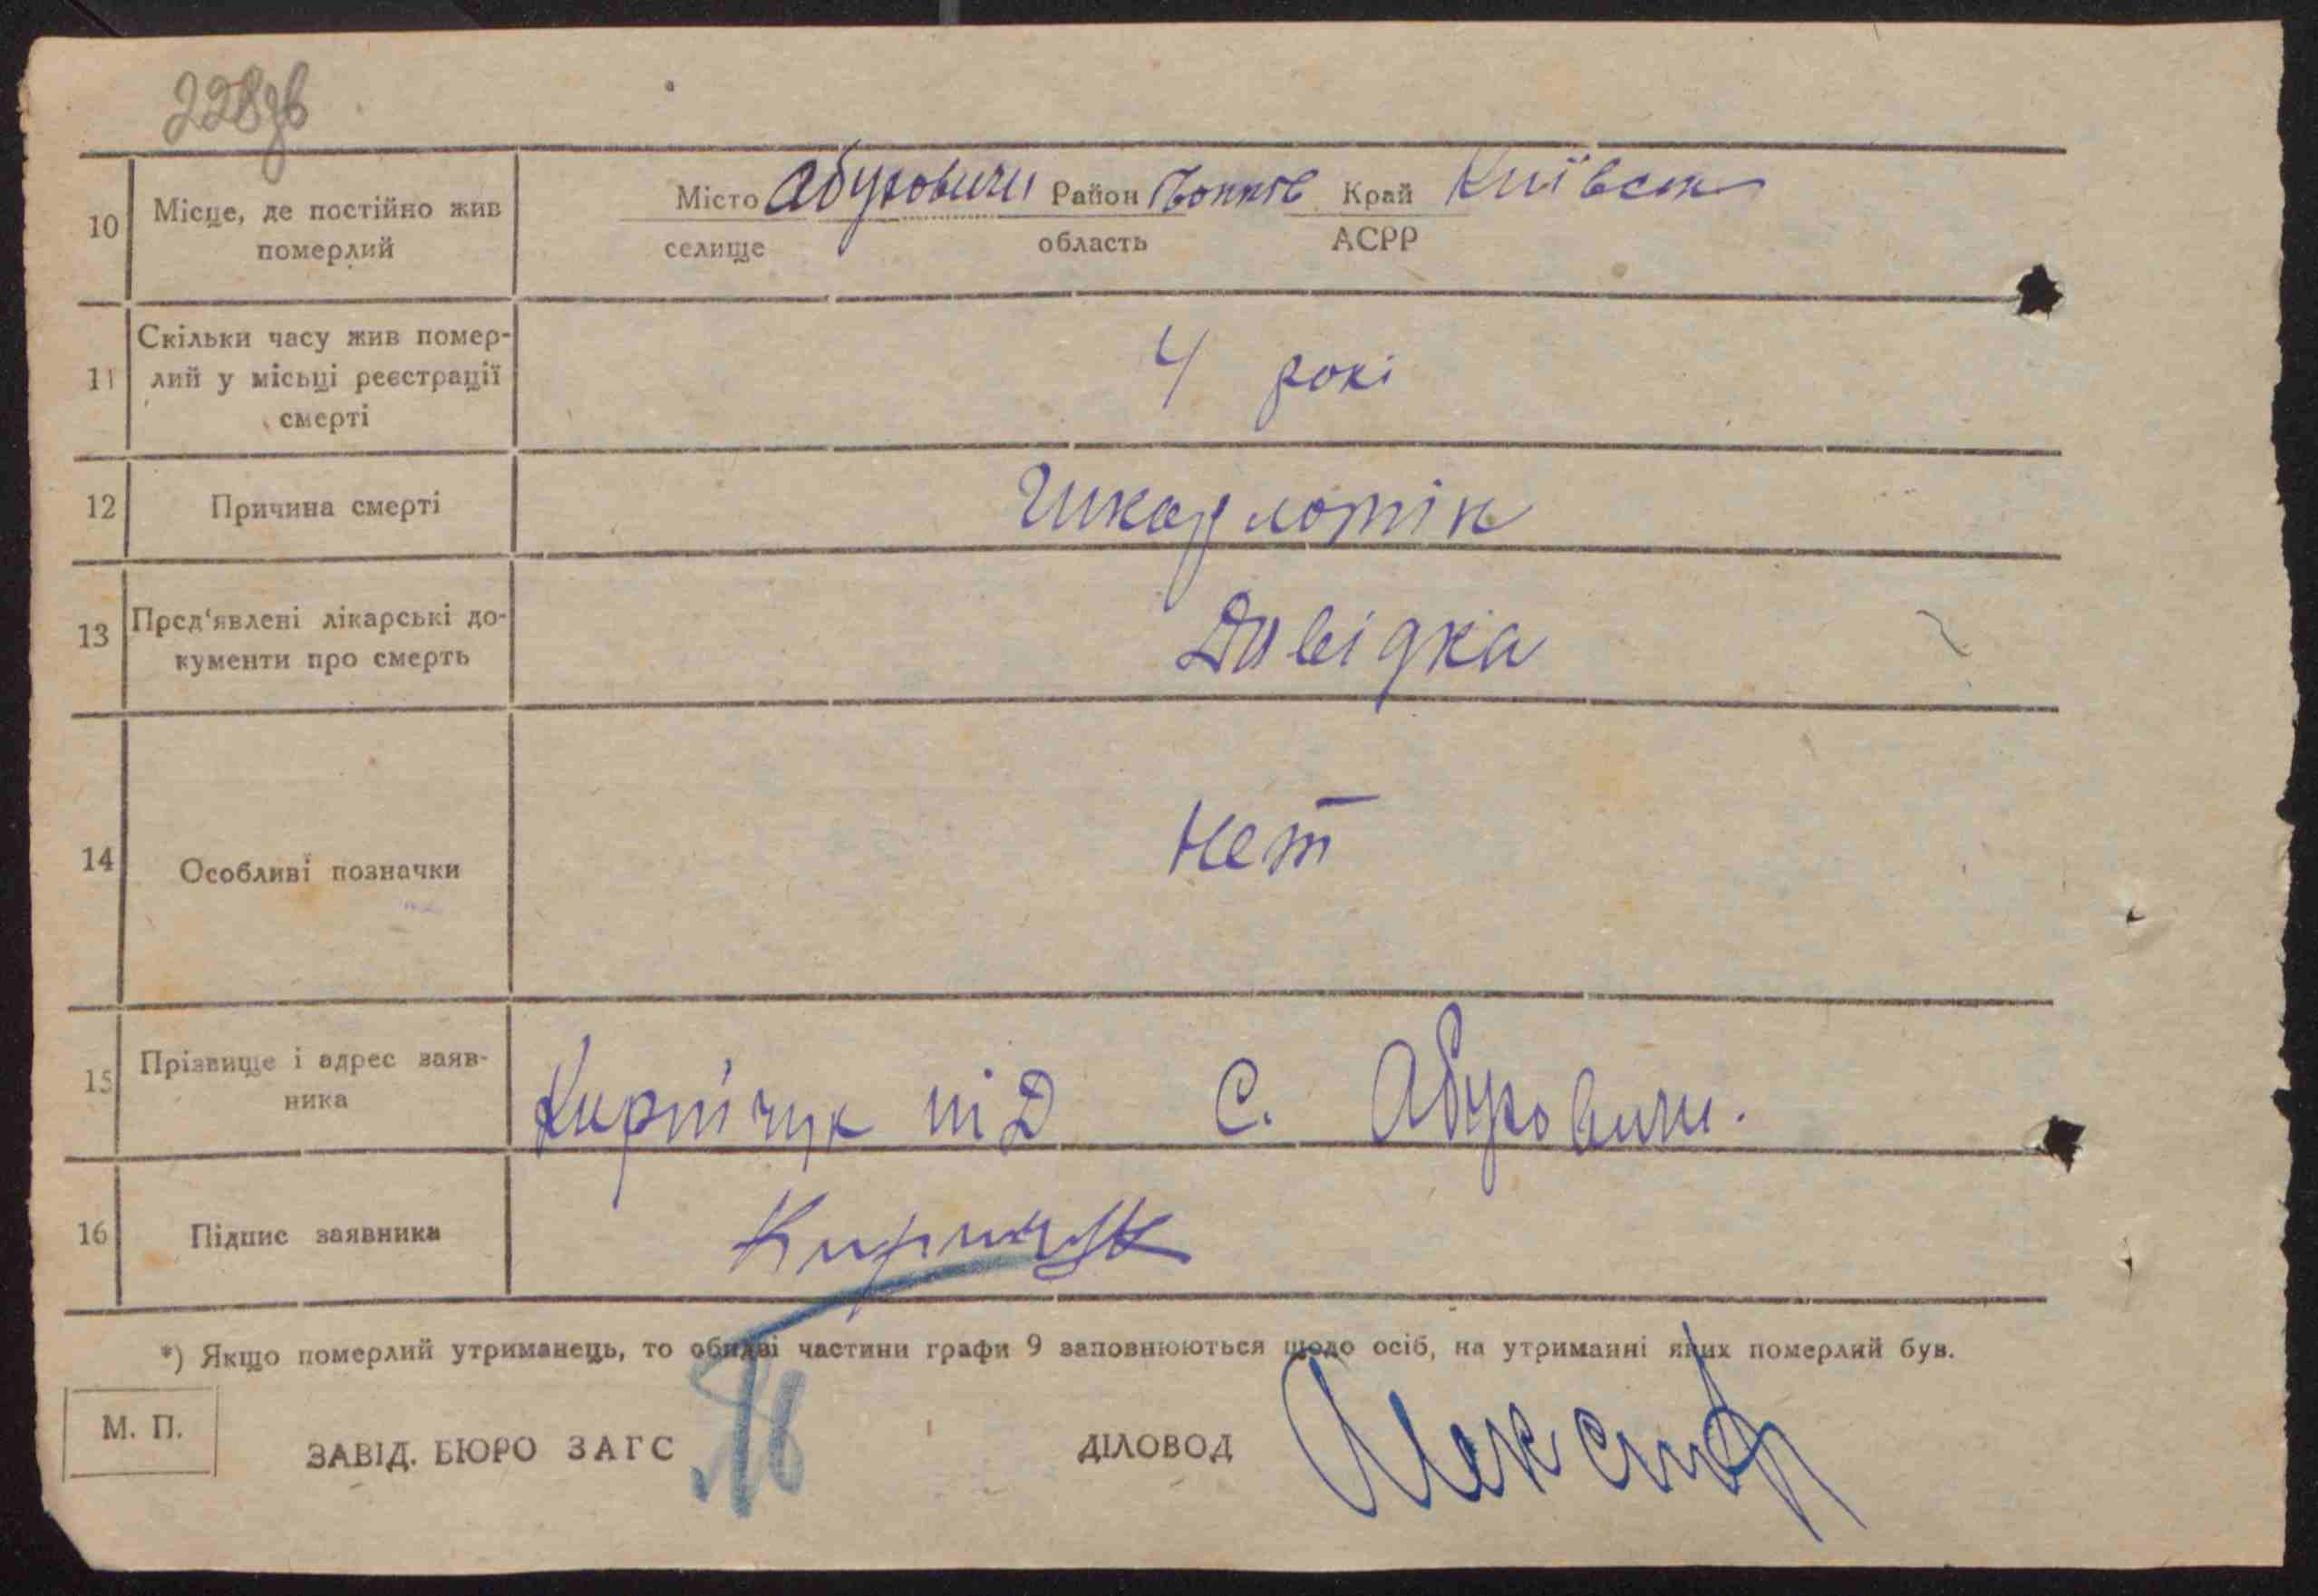 228зв
10 Місце, де постійно жив померлий
Місто Абуховичи Район Край Київськ
селище область АСРР
11 Скільки часу жив помер-
лий у місьці реєстрації
смерті
4 рокі
12 Причина смерті
Шкарлотін
13 Пред'явлені лікарські до-
кументи про смерть
Давідка
14 Особливі позначки
Нет
15 Прізвище і адрес заяв-
ника
Кирпічук С. Абуховичи.
16 Підпис заявника
Киричук
*) Якщо померлий утриманець, то обидві частини графи 9 заповнюються щодо осіб, на утриманні яких померлий був.
М. П.
ЗАВІД. БЮРО ЗАГС
ДІЛОВОД